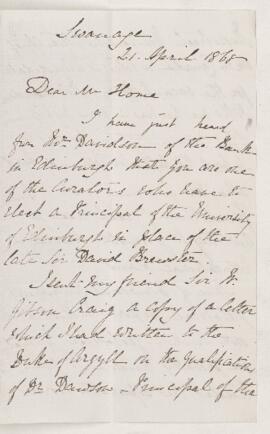 Swanage
21 April 1868
Dear Mr Home
I have just heard
from Mr Davidson of the Bank
in Edinburgh that you are one
of the Curators who have to
elect a Principal of the University
of Edinburgh in place of the
late Sir David Brewster.
I sent my friend Sir W.
Gibson Craig a copy of a letter
which I had written to the
Duke of Argyll on the qualifications
of Dr Dawson, Principal of the